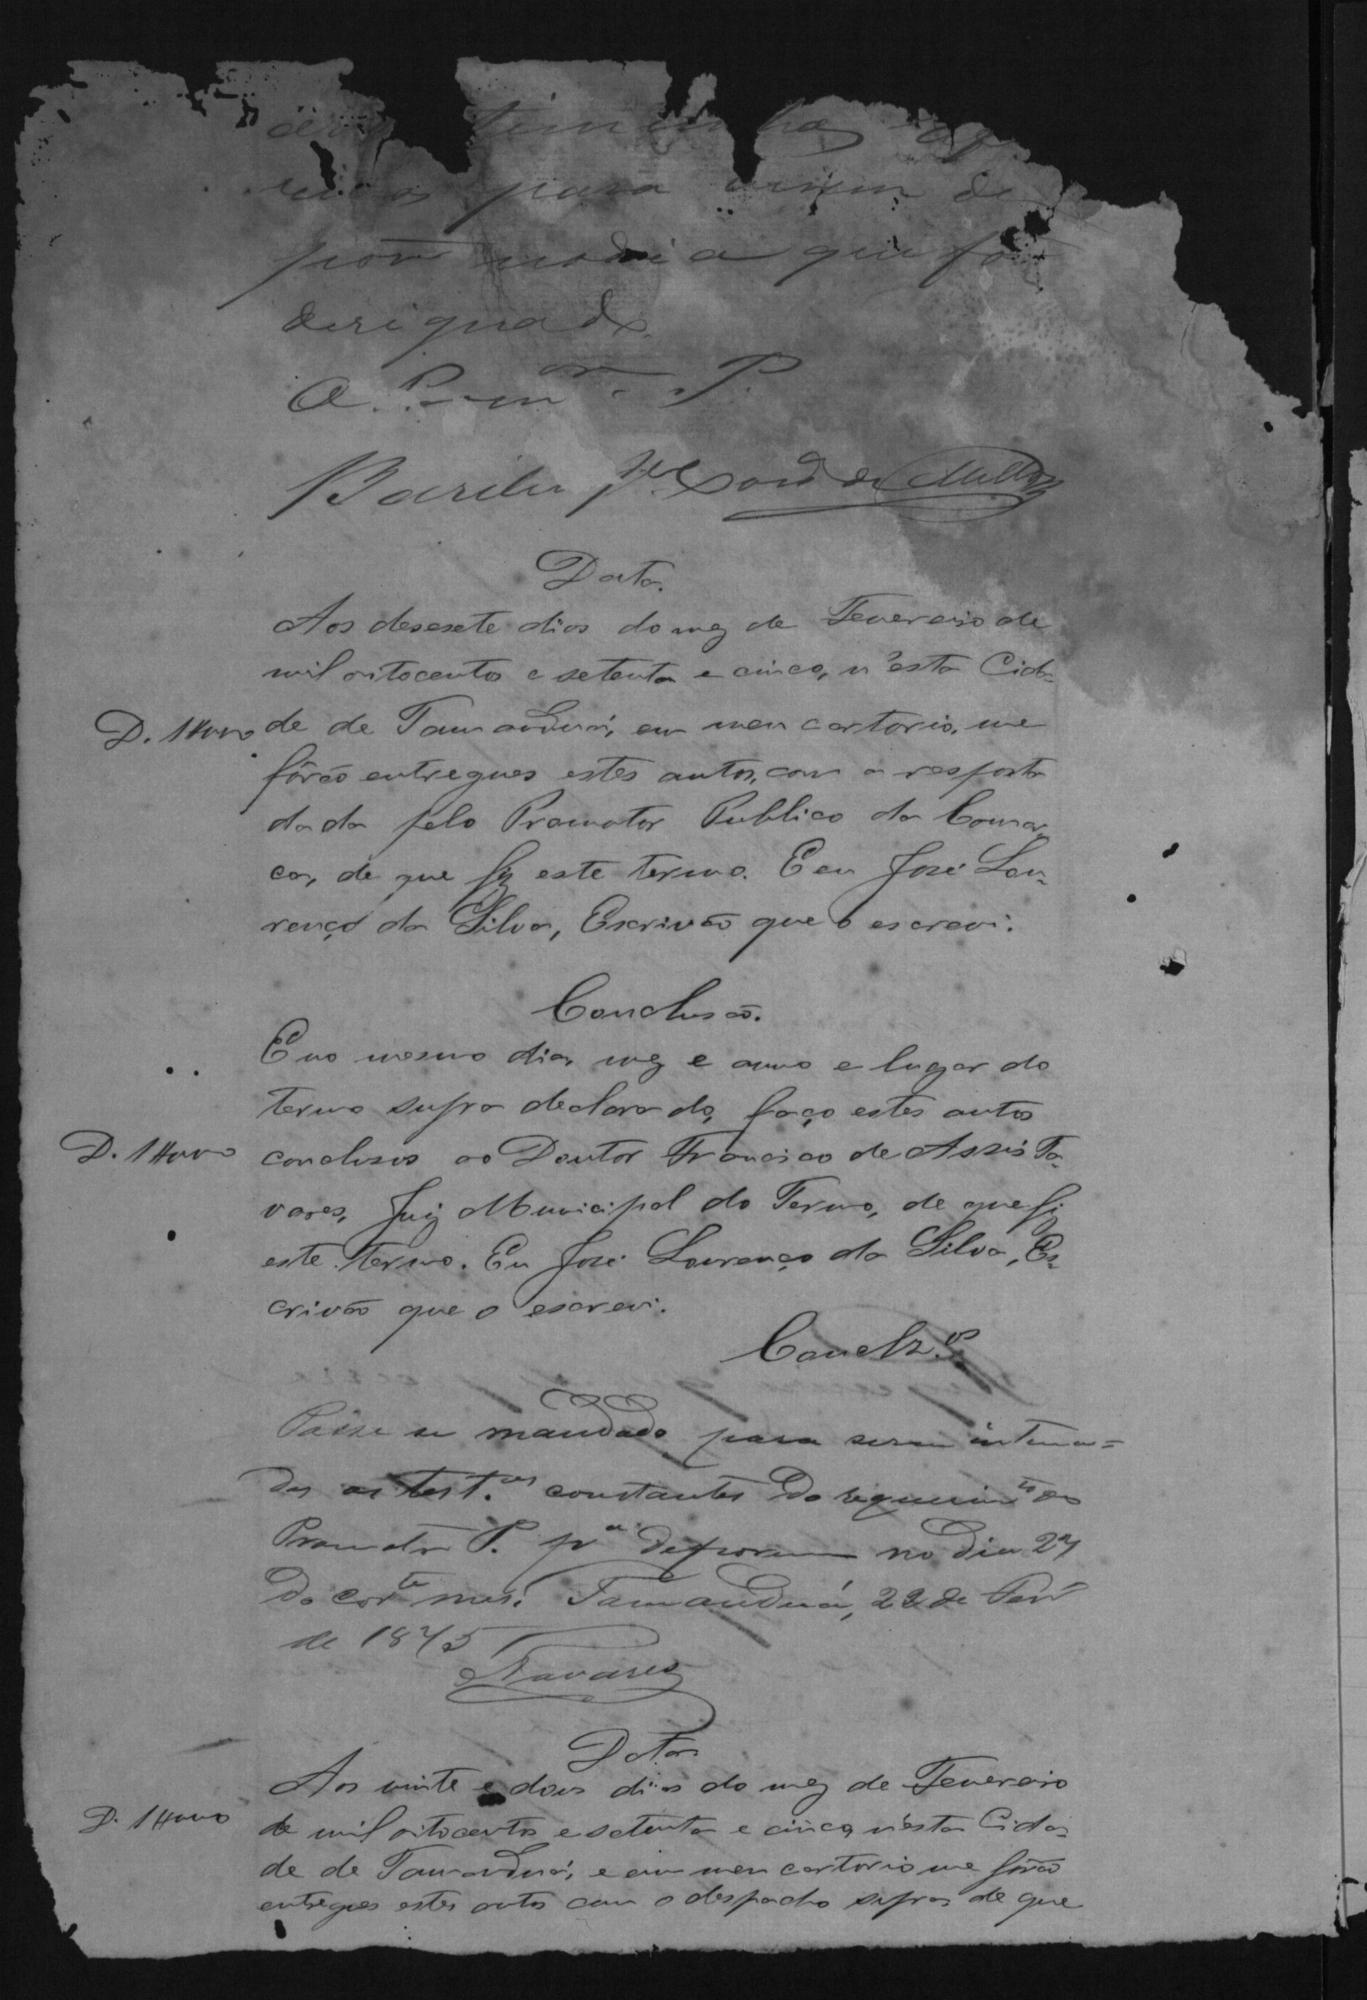 para virem de
por no dia que fôr
designado.
O Prom.or P.
Data.
Aos desesete dias do mez de Fevereiro de
mil oitocento e setenta e cinco, n'esta Cida-
D. 1$000
de de Tamanduá, em meu cartorio, me
fôrão entregues estes autos, com a resposta
dada pelo Promotor Publico da Comar-
ca, de que fiz este termo. E eu José Lou-
renço da Silva, Escrivão que o escrevi.
Conclusão.
E no mesmo dia, mez e anno e lugar do
termo supra declarado, faço estes autos
D. 1$000
conclusos ao Doutor Francisco de Assis Ta-
vares, Juiz Municipal do Termo, de que fiz
este termo. Eu José Lourenço da Silva, Es-
crivão que o escrevi.
Conclz.os
Passe se mandado para serem intima-
das as test.as constantes do requerim.to do
Promotor P. p.a deporem no dia 27
do cor.te mes. Tamanduá, 22 de Fevr.o
de 1875
Tavares
Data
Aos vinte e dous dias do mez de Fevereiro
D. 1$000
de mil oitocento e setenta e cinco, n'esta Cida-
de de Tamanduá, e em meu cartorio me fôrão
entregues estes autos com o despacho supra, de que